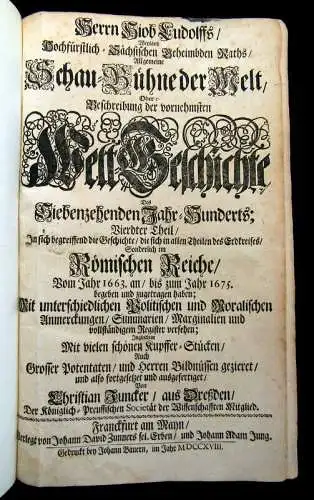 Herrn Hiob Ludolffs/
Weyland
Hochfürstlich-Sächsischen Geheimbden Raths/
Allgemeine
Schau-Bühne der Welt/
Oder:
Beschreibung der vornehmsten
Welt-Geschichte
Des
Siebenzehenden Jahr-Hunderts;
Vierdter Theil/
In sich begreiffend die Geschichte/ die sich in allen Theilen des Erdkreises/
Sonderlich im
Römischen Reiche/
Vom Jahr 1663. an/ bis zum Jahr 1675.
begeben und zugetragen haben;
Mit unterschiedlichen Politischen und Moralischen
Anmerckungen/ Summarien/ Marginalien und
vollständigem Register versehen;
Ingleichen
Mit vielen schönen Kupffer-Stücken/
Auch
Grosser Potentaten/ und Herren Bildnüssen gezieret/
und also fortgesetzet und ausgefertiget/
Von
Christian Juncker/ aus Dreßden/
Der Königlich-Preussischen Societät der Wissenschafften Mitglied.
Franckfurt am Mayn/
Verlegt von Johann David Zunners sel. Erben/ und Johann Adam Jung.
Gedruckt bey Johann Bauern, im Jahr MDCCXVIII.